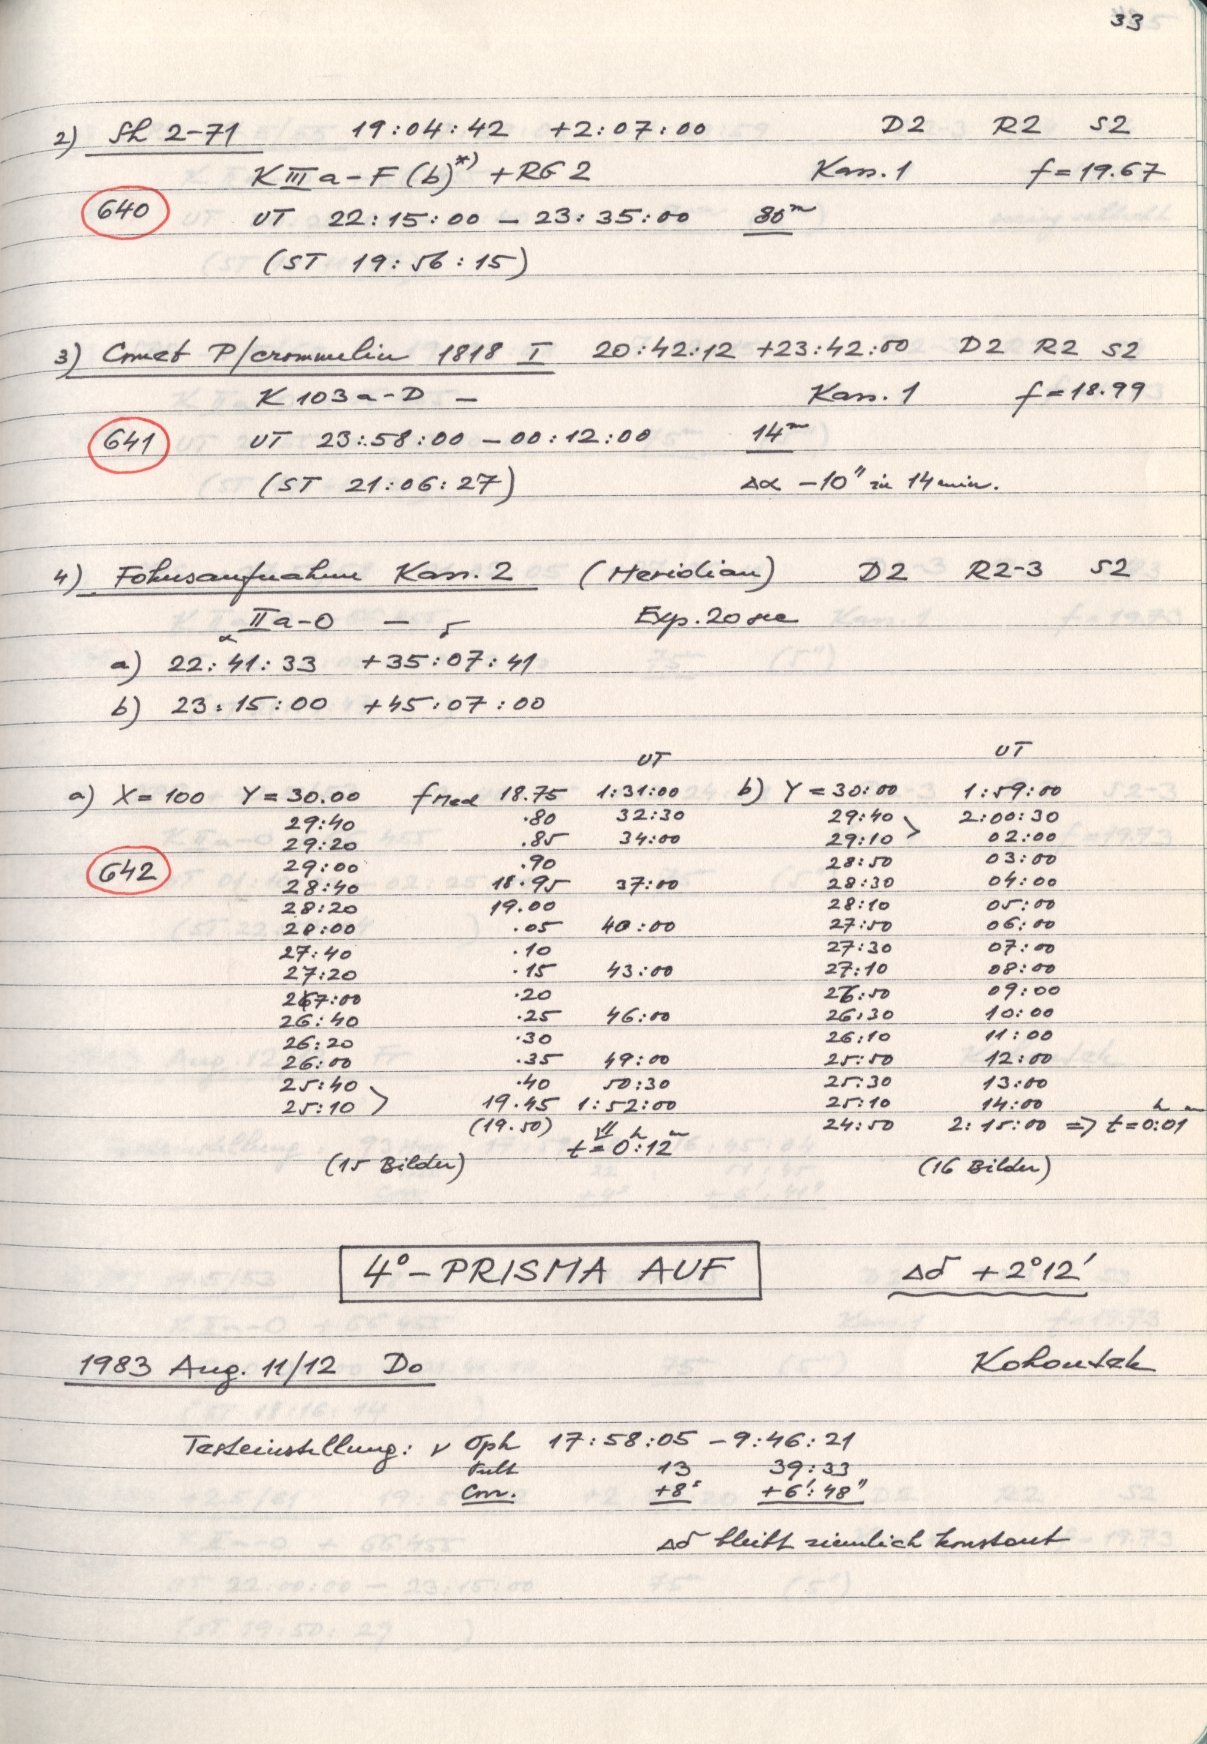 33
2) Sh 2-71 19:04:42 +2:07:00 D2 R2 S2
K III a-F (b)*) + RG 2 Kass. 1 f = 19.67
640 UT 22:15:00 – 23:35:00 80m
(ST 19:56:15)
3) Comet P/Crommelin 1818 I 20:42:12 +23:42:00 D2 R2 S2
K 103 a-D – Kass. 1 f = 18.99
641 UT 23:58:00 – 00:12:00 14m
(ST 21:06:27) Δα –10" in 14 min.
4) Fokusaufnahme Kass. 2 (Meridian) D2 R2-3 S2
II a-O – Exp. 20 sec
α δ
a) 22:41:33 +35:07:41
b) 23:15:00 +45:07:00
UT UT
a) X = 100 Y = 30.00 f Med 18.75 1:31:00 b) Y = 30:00 1:59:00
29:40 .80 32:30 29:40 2:00:30
29:20 .85 34:00 29:10 > 02:00
642 29:00 .90 28:50 03:00
28:40 18.95 37:00 28:30 04:00
28:20 19.00 28:10 05:00
28:00 .05 40:00 27:50 06:00
27:40 .10 27:30 07:00
27:20 .15 43:00 27:10 08:00
27:00 .20 26:50 09:00
26:40 .25 46:00 26:30 10:00
26:20 .30 26:10 11:00
26:00 .35 49:00 25:50 12:00
25:40 .40 50:30 25:30 13:00
25:10 > 19.45 1:52:00 25:10 14:00
(19.50) ⇓ 24:50 2:15:00 => t = 0h:01m
t = 0h:12m
(15 Bilder) (16 Bilder)
4° – PRISMA AUF Δδ + 2°12'
1983 Aug. 11/12 Do Kohoutek
Testeinstellung: ν Oph 17:58:05 –9:46:21
Pult 13 39:33
Corr. +8s +6':48"
Δδ bleibt ziemlich konstant